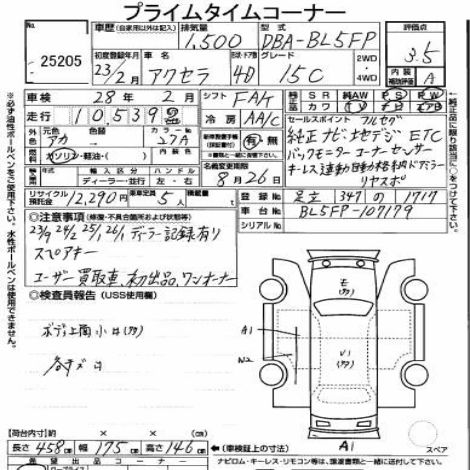 プライムタイムコーナー
25205
車歴 (自家用以外は記入) 排気量 型式 評価点
1,500 DBA-BL5FP 3.5
初度登録年月 車名 ドア形状 グレード 2WD・4WD 内装補助評価
23/2月 アクセラ 4D 15C A
車検 28年2月 シフト FAT SR AW PS PW
走行 10,539 冷房 AA/C カワ TV
外色 元色 アカ カラーNo. 27A 新車整備手帳(保証書付) 有・無 セールスポイント フルセグ
純正ナビ 地デジ ETC
燃料 ガソリン・軽油・( ) バックモニター コーナーセンサー
輸入区分 ハンドル キーレス連動自動格納ドアミラー
ディーラー・並行 左・右 名義変更期限 リヤスポ
8月26日
リサイクル預託金 12,290円 乗車定員 5人 積載量 登録番号 足立 347 の 1717
車台No. BL5FP-107179
シリアルNo.
◎注意事項(修復・不具合箇所および状態等)
23/9 24/2 25/1 26/1 ディーラー記録有り
スペアキー
ユーザー買取車、初出品、ワンオーナー
◎検査員報告(USS使用欄)
A1
【荷台内寸】 × × (cm)
長さ 458cm 幅 175cm 高さ 146cm ←(車検証上の寸法) A1 スペア
希望出品コーナー ナビロム・キーレス・リモコン等は、譲渡書類と一緒に送付して下さい。
※必ず油性ボールペンをご使用下さい。水性ボールペンは使用できません。